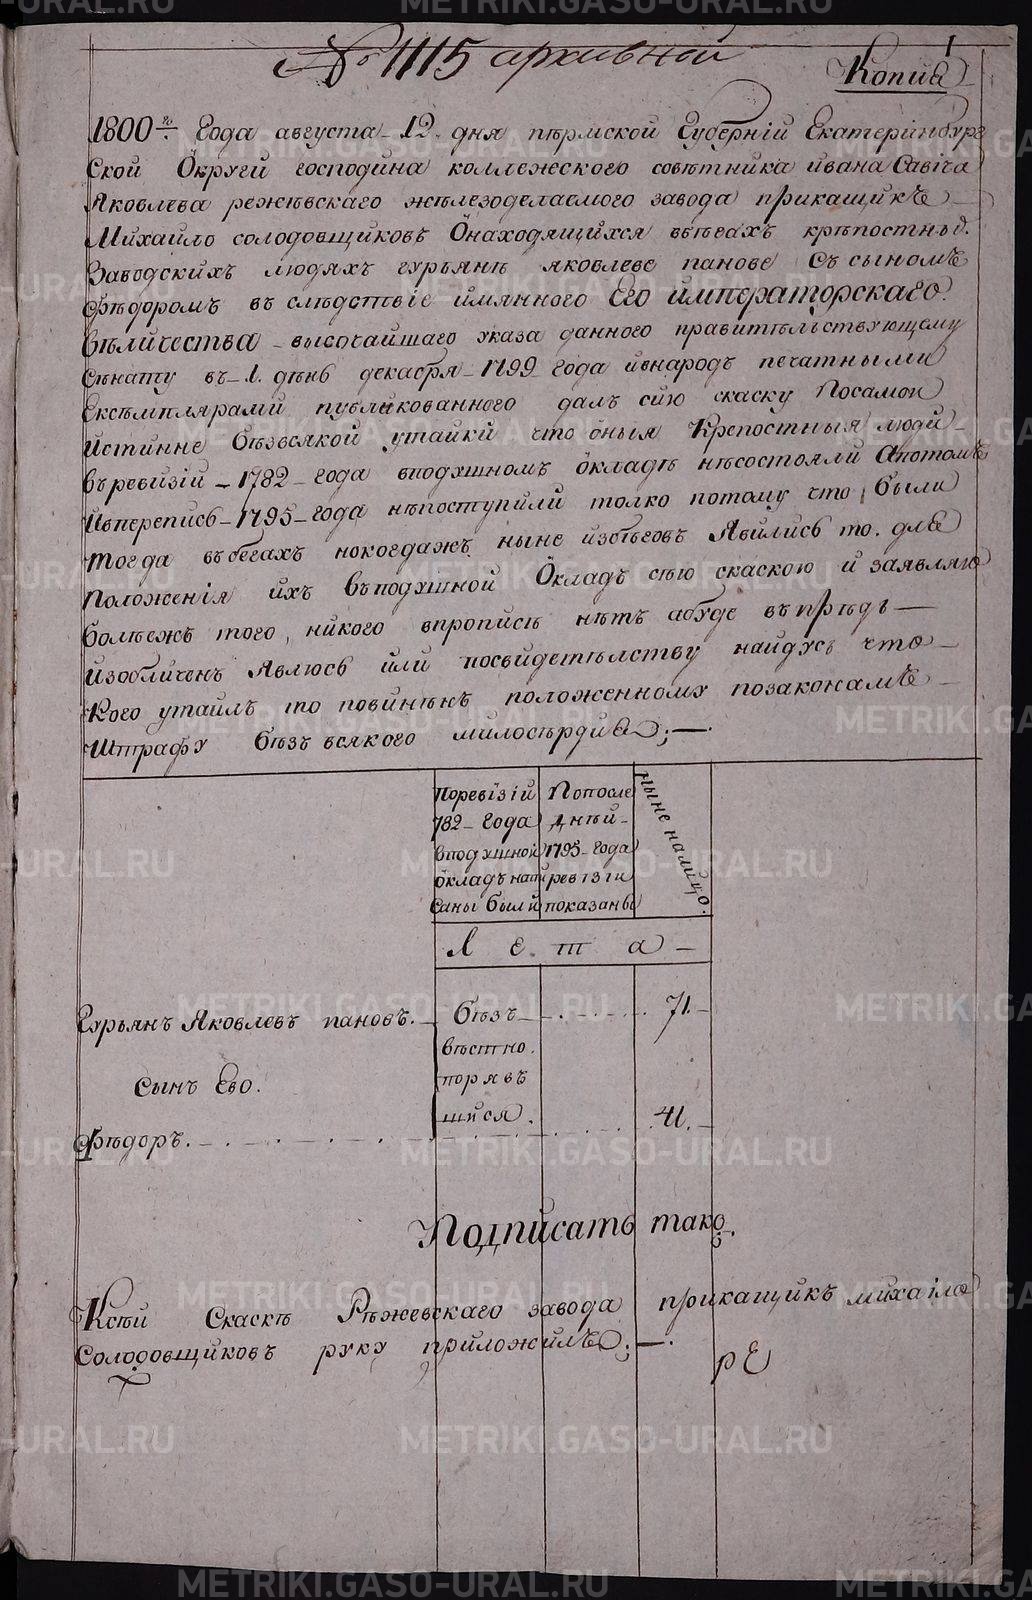 № 1115 архивной
1
Копиѧ
1800го Года августа 12 дня пѣрмской Губерніи Екатеринбург
ской Округи господина коллежского совѣтника ивана Савича
Яковлева режѣвскаго желѣзоделаемого завода прикащикъ
Михайло солодовщиковъ Онаходящихся вбѣгахъ крѣпостныхъ
Заводскихъ людяхъ гурьянѣ яковлеве панове съ сыномъ
Фѣдоромъ въ слѣдствіе имянного Его императорскаго
вѣличества высочайшаго указа данного правитѣльствующему
сѣнату въ 1. дѣнь декабря 1799 года ивнародъ печатными
Екзѣмплярами публикованного далъ сию скаску Посамои
Истинне бѣзвсякой утайки что оныя Крепостныя люди
въревизіи 1782 года вподушномъ окладѣ нѣсостояли Апотомъ
Ивперепись 1795 года нѣпоступили толко потому что были
тогда въбегахъ нокогдажъ ныне избѣговъ Явились то. для
Положенія ихъ въподушной Окладъ сѣю скаскою и заявляю
болѣежъ того никого впрописѣ нѣтъ абуде въпрѣдь
изобличенъ Явлюсь или посвидетѣлству найдусь что
Кого утаилъ то повинѣнъ положенному позаконамъ
Штрафу бѣзъ всякого милосѣрдия;
Поревізіи
782 Года
вподушной
окладъ напи
саны были
Попосле
днѣй
1795 года
ревізіи
показаны
ныне налицо.
л е. т а
Гурьянъ Яковлевъ пановъ. Бѣзъ 71.
вѣстно.
сынъ Ево. поряв
шийся. 41.
Фѣдоръ.
Подписатъ тако.
Ксѣй Скаскѣ Рѣжевскаго завода прикащикъ михаіло
Солодовщиковъ руку приложилъ;